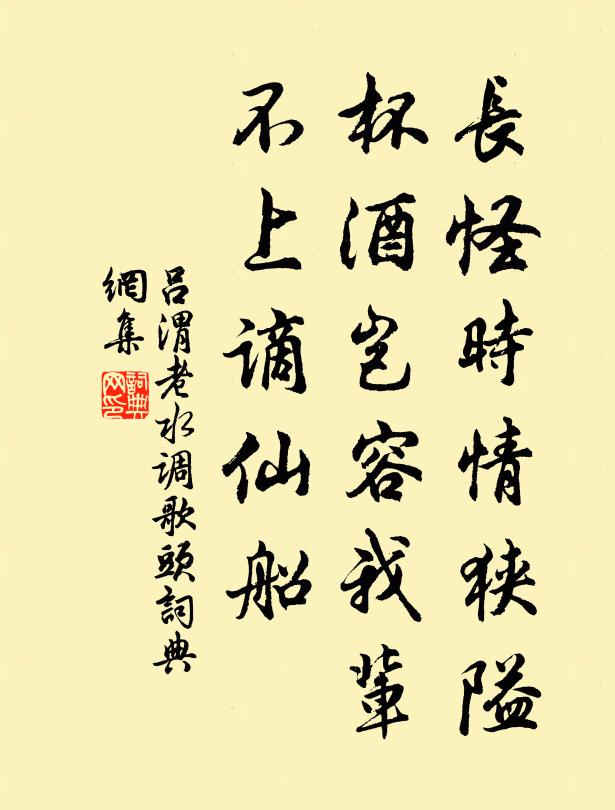 長怪時情狹隘
杯酒岂容我輩
不上谪仙船
吕渭老水调歌頭詞典
網集
詞典
网印